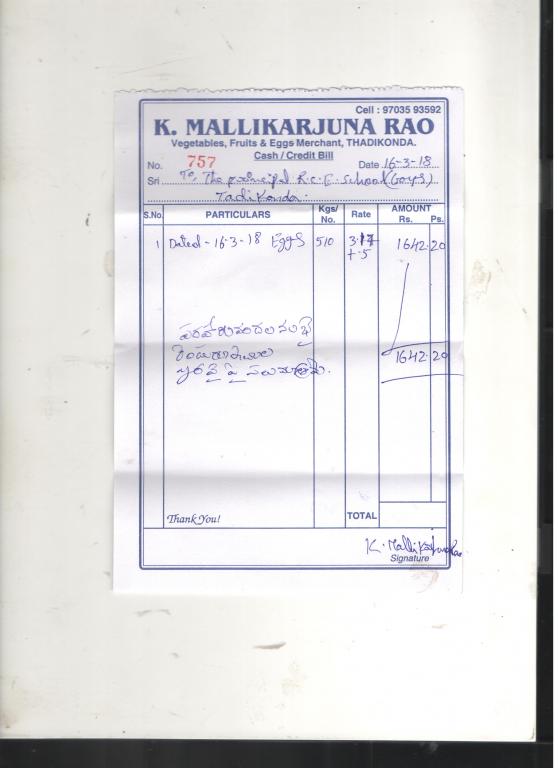 Cell : 97035 93592
K. MALLIKARJUNA RAO
Vegetables, Fruits & Eggs Merchant, THADIKONDA.
Cash / Credit Bill
No. 757 Date 16-3-18
Sri To, The principal R.C.E. School (Boys)
Tadikonda.
S.No. PARTICULARS Kgs/ No. Rate AMOUNT Rs. Ps.
1 Dated - 16-3-18 Eggs 510 1642.20
పదహారువందల నలభై
రెండు రూపాయల
ఇరవై పై
1642.20
Thank You! TOTAL
K. Mallikarjuna Rao
Signature